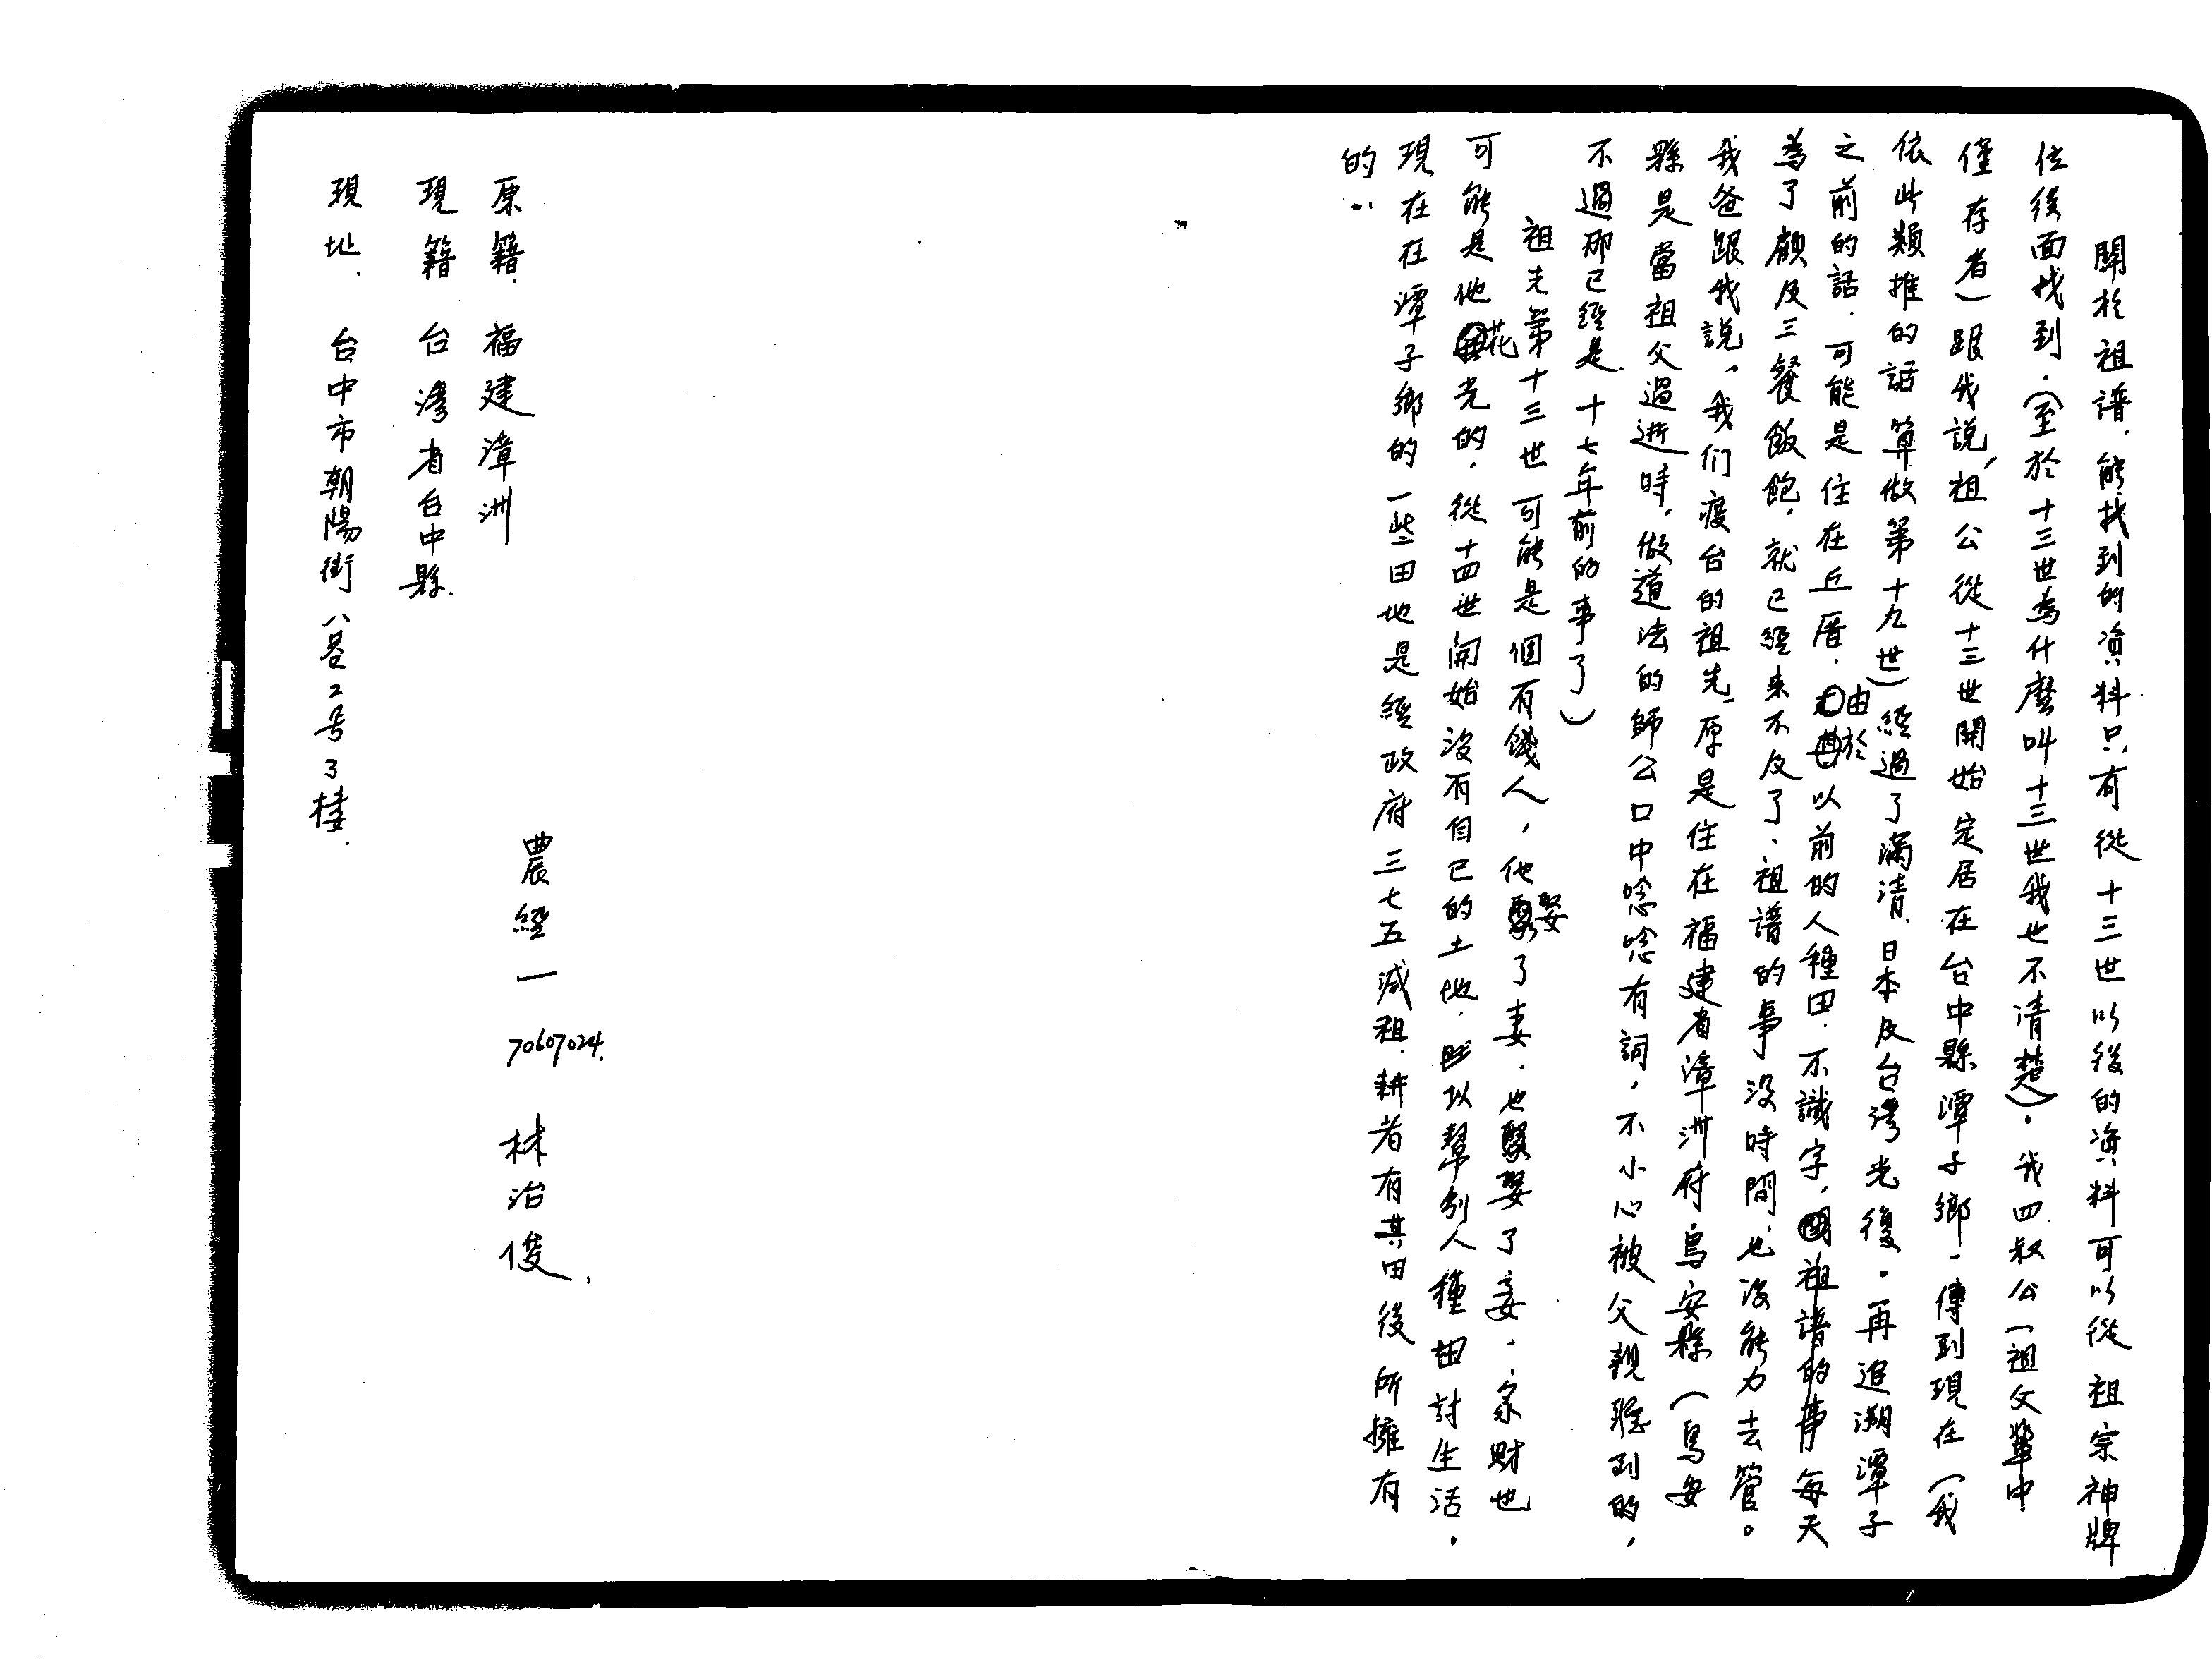 關於祖譜，能找到的資料只有從十三世以後的資料可以從祖宗神牌
位後面找到．（至於十三世為什麼叫十三世我也不清楚）．我四叔公（祖父輩中
僅存者）跟我說，祖公從十三世開始定居在台中縣潭子鄉，傳到現在（我
依此類推的話算做第十九世）經過了滿清、日本及台灣光復．再追溯潭子
之前的話．可能是住在丘厝．由於以前的人種田．不識字，祖譜的事每天
為了顧及三餐飯飽，就已經來不及了，祖譜的事沒時間，也沒能力去管。
我爸跟我說，我们渡台的祖先，原是住在福建省漳洲府烏安縣（烏安
縣是當祖父過逝時，做道法的師公口中唸唸有詞，不小心被父親聽到的，
不過那已經是十七年前的事了）
祖先第十三世可能是個有錢人，他娶了妻．也娶了妾，家財也
可能是他花光的．從十四世開始沒有自己的土地．所以幫別人種田討生活．
現在在潭子鄉的一些田地是經政府三七五減租．耕者有其田後所擁有
的．
農經一 70607024. 林治俊．
原籍．福建漳洲
現籍 台灣省台中縣．
現地．台中市朝陽街八巷2号3樓．